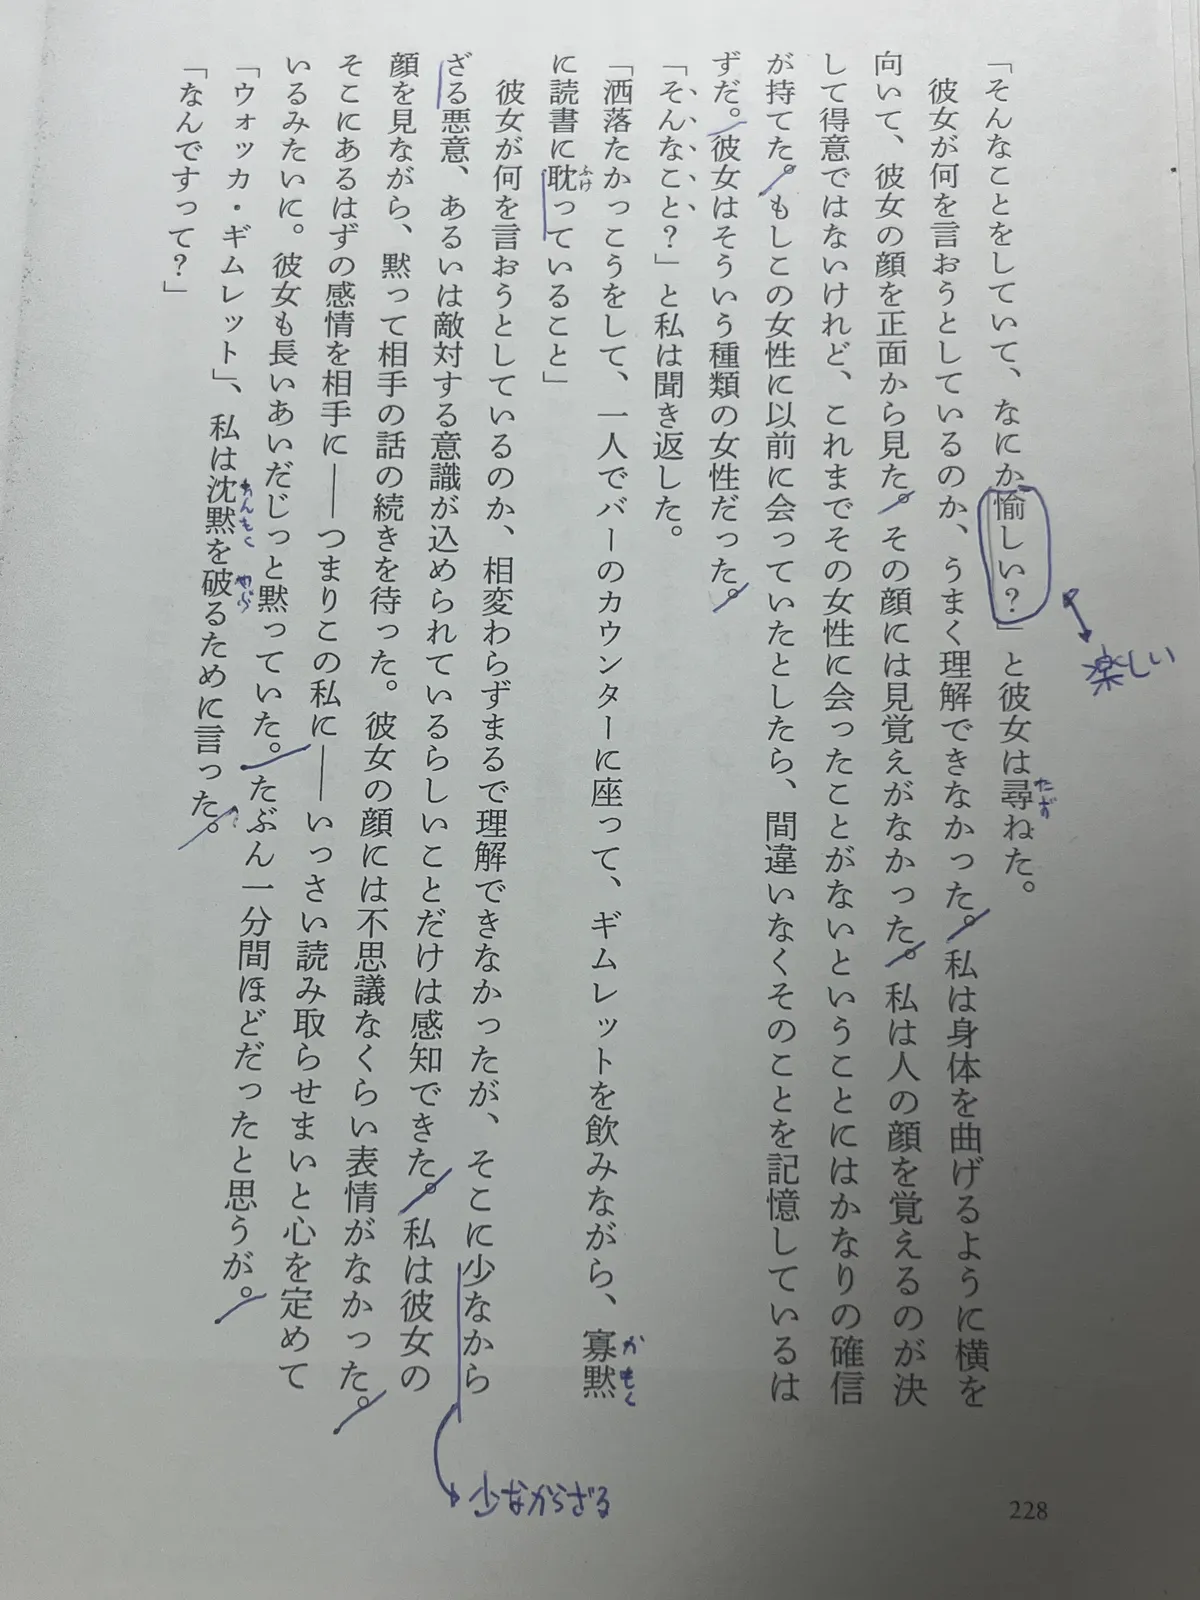 「そんなことをしていて、なにか愉しい？」と彼女は尋ねた。
たず
楽しい
彼女が何を言おうとしているのか、うまく理解できなかった。私は身体を曲げるように横を
向いて、彼女の顔を正面から見た。その顔には見覚えがなかった。私は人の顔を覚えるのが決
して得意ではないけれど、これまでその女性に会ったことがないということにはかなりの確信
が持てた。もしこの女性に以前に会っていたとしたら、間違いなくそのことを記憶しているは
ずだ。彼女はそういう種類の女性だった。
「そんなこと？」と私は聞き返した。
「洒落たかっこうをして、一人でバーのカウンターに座って、ギムレットを飲みながら、寡黙
かもく
に読書に耽っていること」
ふけ
彼女が何を言おうとしているのか、相変わらずまるで理解できなかったが、そこに少なから
少なからざる
ざる悪意、あるいは敵対する意識が込められているらしいことだけは感知できた。私は彼女の
顔を見ながら、黙って相手の話の続きを待った。彼女の顔には不思議なくらい表情がなかった。
そこにあるはずの感情を相手に——つまりこの私に——いっさい読み取らせまいと心を定めて
いるみたいに。彼女も長いあいだじっと黙っていた。たぶん一分間ほどだったと思うが。
「ウォッカ・ギムレット」、私は沈黙を破るために言った。
んもく
やぶ
「なんですって？」
228